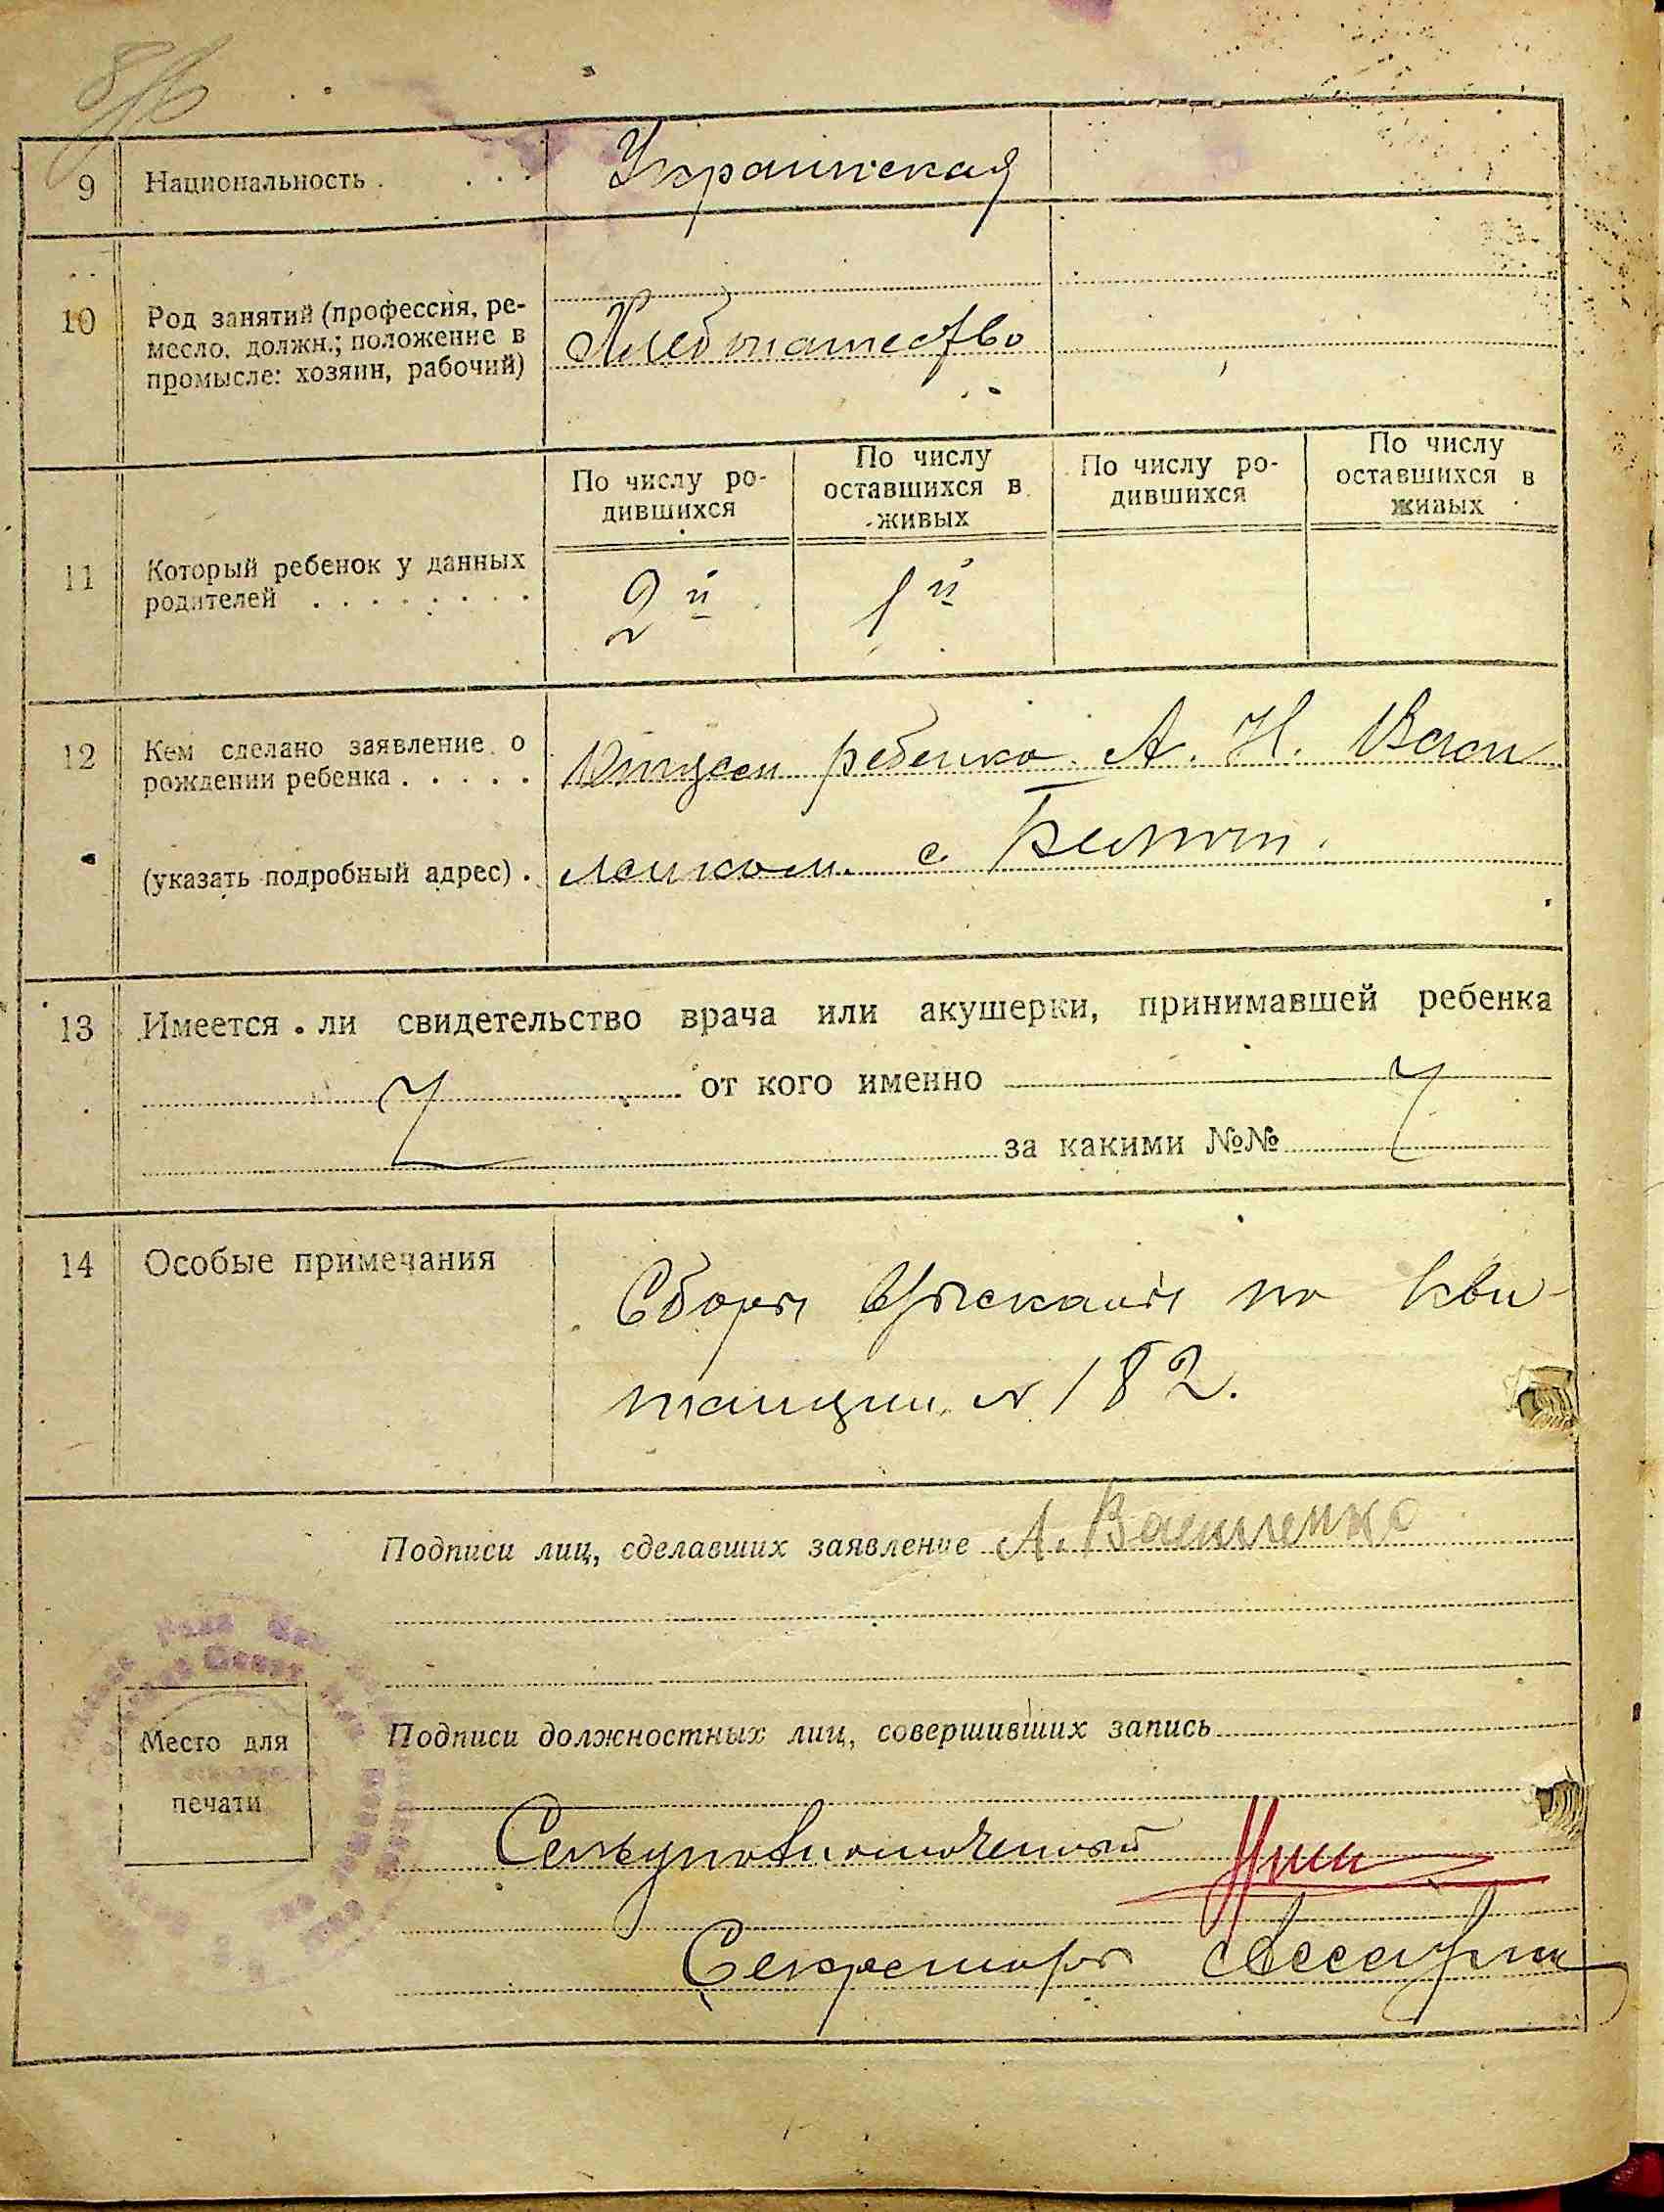 9 Национальность . . . . Украинская
10 Род занятий (профессия, ре-
месло, должн.; положение в
промысле: хозяин, рабочий)
Хлебопашество
По числу ро-
дившихся
По числу
оставшихся в
живых
По числу ро-
дившихся
По числу
оставшихся в
живых
11 Который ребенок у данных
родителей . . . . . . . .
2й 1й
12 Кем сделано заявление о
рождении ребенка . . . . .
Отцем ребенка А. Н. Васи
(указать подробный адрес) .
ленком с.
13 Имеется ли свидетельство врача или акушерки, принимавшей ребенка
от кого именно
за какими №№
14 Особые примечания
Сборы взысканы по кви-
танции N 182.
Подписи лиц, сделавших заявление А. Василенко
Подписи должностных лиц, совершивших запись
Место для
печати
Сельуполномоченный
Секретарь